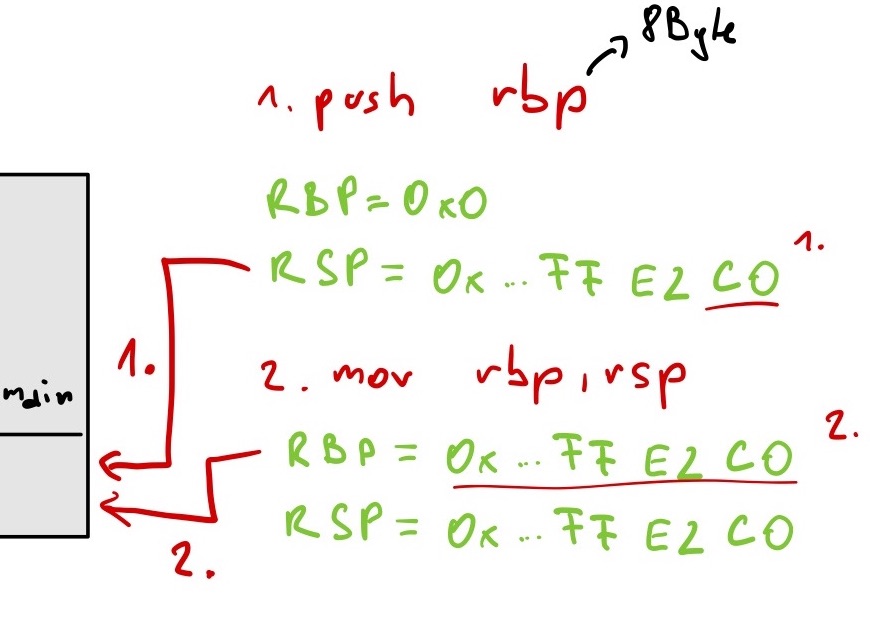 8Byte
1. push rbp
RBP = 0x0
RSP = 0x ... FF E2 C0 1.
1.
2. mov rbp, rsp
main
RBP = 0x ... FF E2 C0 2.
RSP = 0x ... FF E2 C0
2.